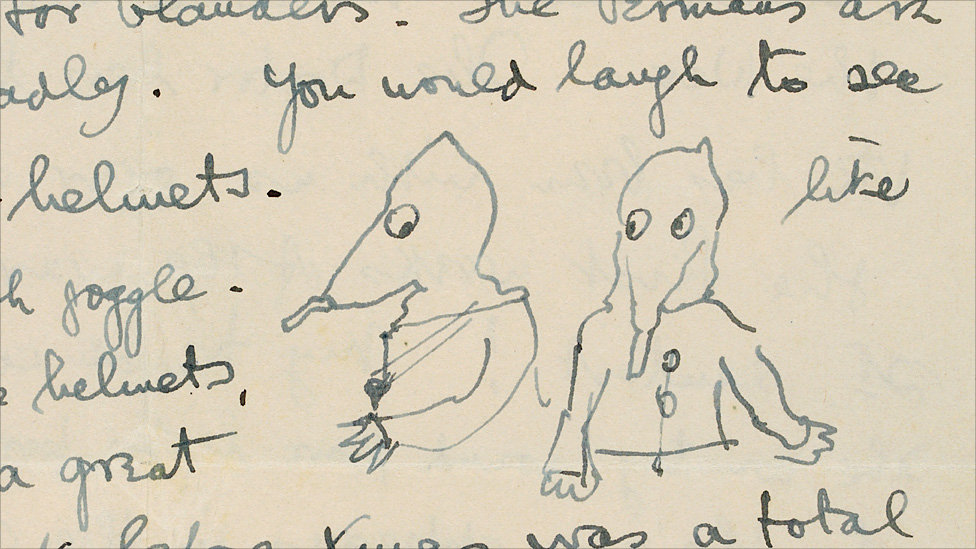 for The Germans
adly. You would laugh to see
helmets. like
h goggle.
helmets,
a great
Xmas was a total